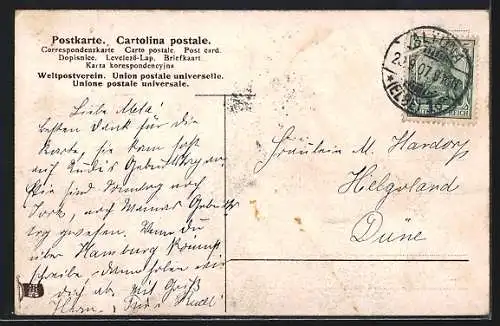 Postkarte. Cartolina postale.
Correspondenzkarte Carto postale. Post card.
Dopisnice. Levelező-Lap. Briefkaart
Karta korespondencyjna
Weltpostverein. Union postale universelle.
Unione postale universale.
Liebe Meta!
besten Dank für die
Karte, sie kam fast
auf Rudis Geburtstag an
Wir sind Sonntag
York, noch Mamas Geburts
tag gewesen. Wenn du
über Hamburg kommst
schreibe, dann holen wir
dich ab. Mit Gruß
Fräulein M. Hardorp
Helgoland
Düne